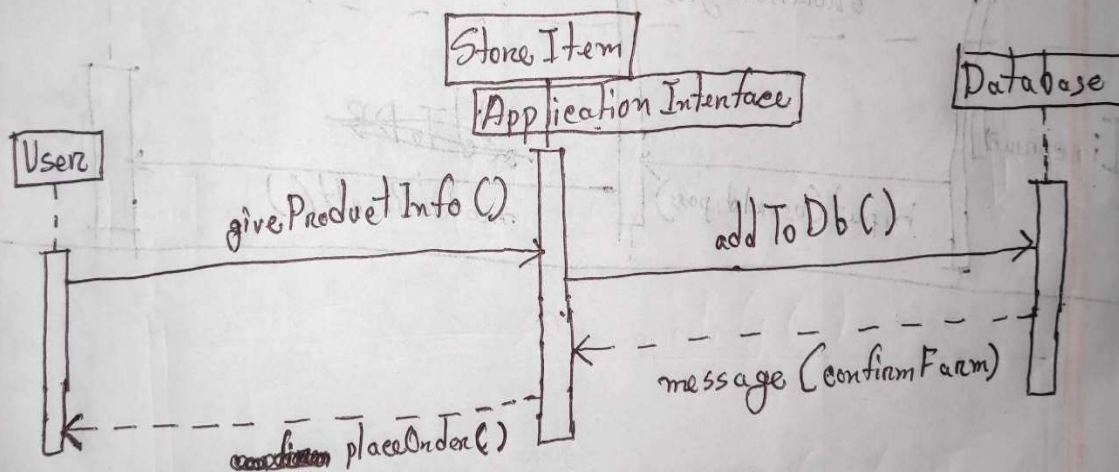 Store Item
Application Interface
Database
User
giveProductInfo()
addToDb()
message (confirmFarm)
placeOrder()